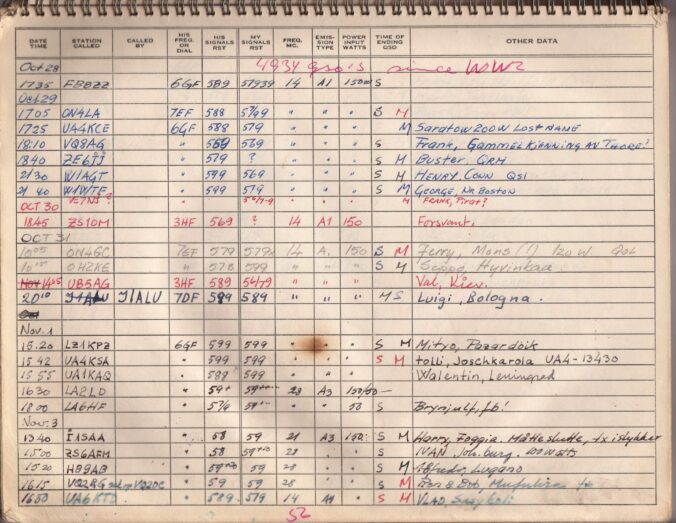 DATE TIME STATION CALLED CALLED BY HIS FREQ. OR DIAL HIS SIGNALS RST MY SIGNALS RST FREQ. MC. EMIS- SION TYPE POWER INPUT WATTS TIME OF ENDING QSO OTHER DATA
Oct 28 4934 qso's since WW2
1735 FB8ZZ 6GF 589 57939 14 A1 150w S
Oct 29
1705 ON4LA 7EF 588 " " " S M
1725 UA4KCE 6GF 588 579 " " " M Saratow 200W Lost NAME
18:10 VQ8AG " 569 569 " " " S Frank, Gammel
1840 ZE6JJ " 579 ? " " " S M Buster. QRM
21 30 W1AGT " 599 569 " " " S M HENRY. CONN QSL
21 40 W1WTE " 599 579 " " " S M GEORGE, NR BOSTON
OCT 30 M FRANK, Pirat?
1845 ZS10M 3HF 569 ? 14 A1 150 Forsvant.
OCT 31
ON4GC 7EF 579 14 A. 150 S M Mons (!) 120 W.
OH2KE " 578 599 " " " S M Seppo Hyvinkaa
Nov 14 05 UB5AG 3HF 589 " " " Val, Kiev.
20 10 I1ALU 7DF 589 589 " " " M S Luigi, Bologna.
Nov. 1
15.20 LZ1KPZ 6GF 599 599 " " " S M Mityo, Pazardoik
15 42 UA4KSA " 599 599 " " " S M tolli, Joschkarola UA4-13430
15 55 UA1KAQ " 589 599 " " " Walentin, Leningrad
1630 LA2LD " 59+ 59+ 28 A3 150/50
18.00 LA6HF " 59+ " " 50 S Brynjulf, fb!
Nov. 3
1340 I1SAA " 58 59 21 A3 150 S M Harry, Foggia.
1500 ZS6AFM " 58 28 " " S IVAN, Joh.burg. 100 watts
1520 HB9AB " 59 28 " " S M Alfredo, Lugano
1615 " 59 59 28 " " S M & Bob Mufulira
1650 UA6KTD " 589 579 14 A1 " S M VLAD,
52